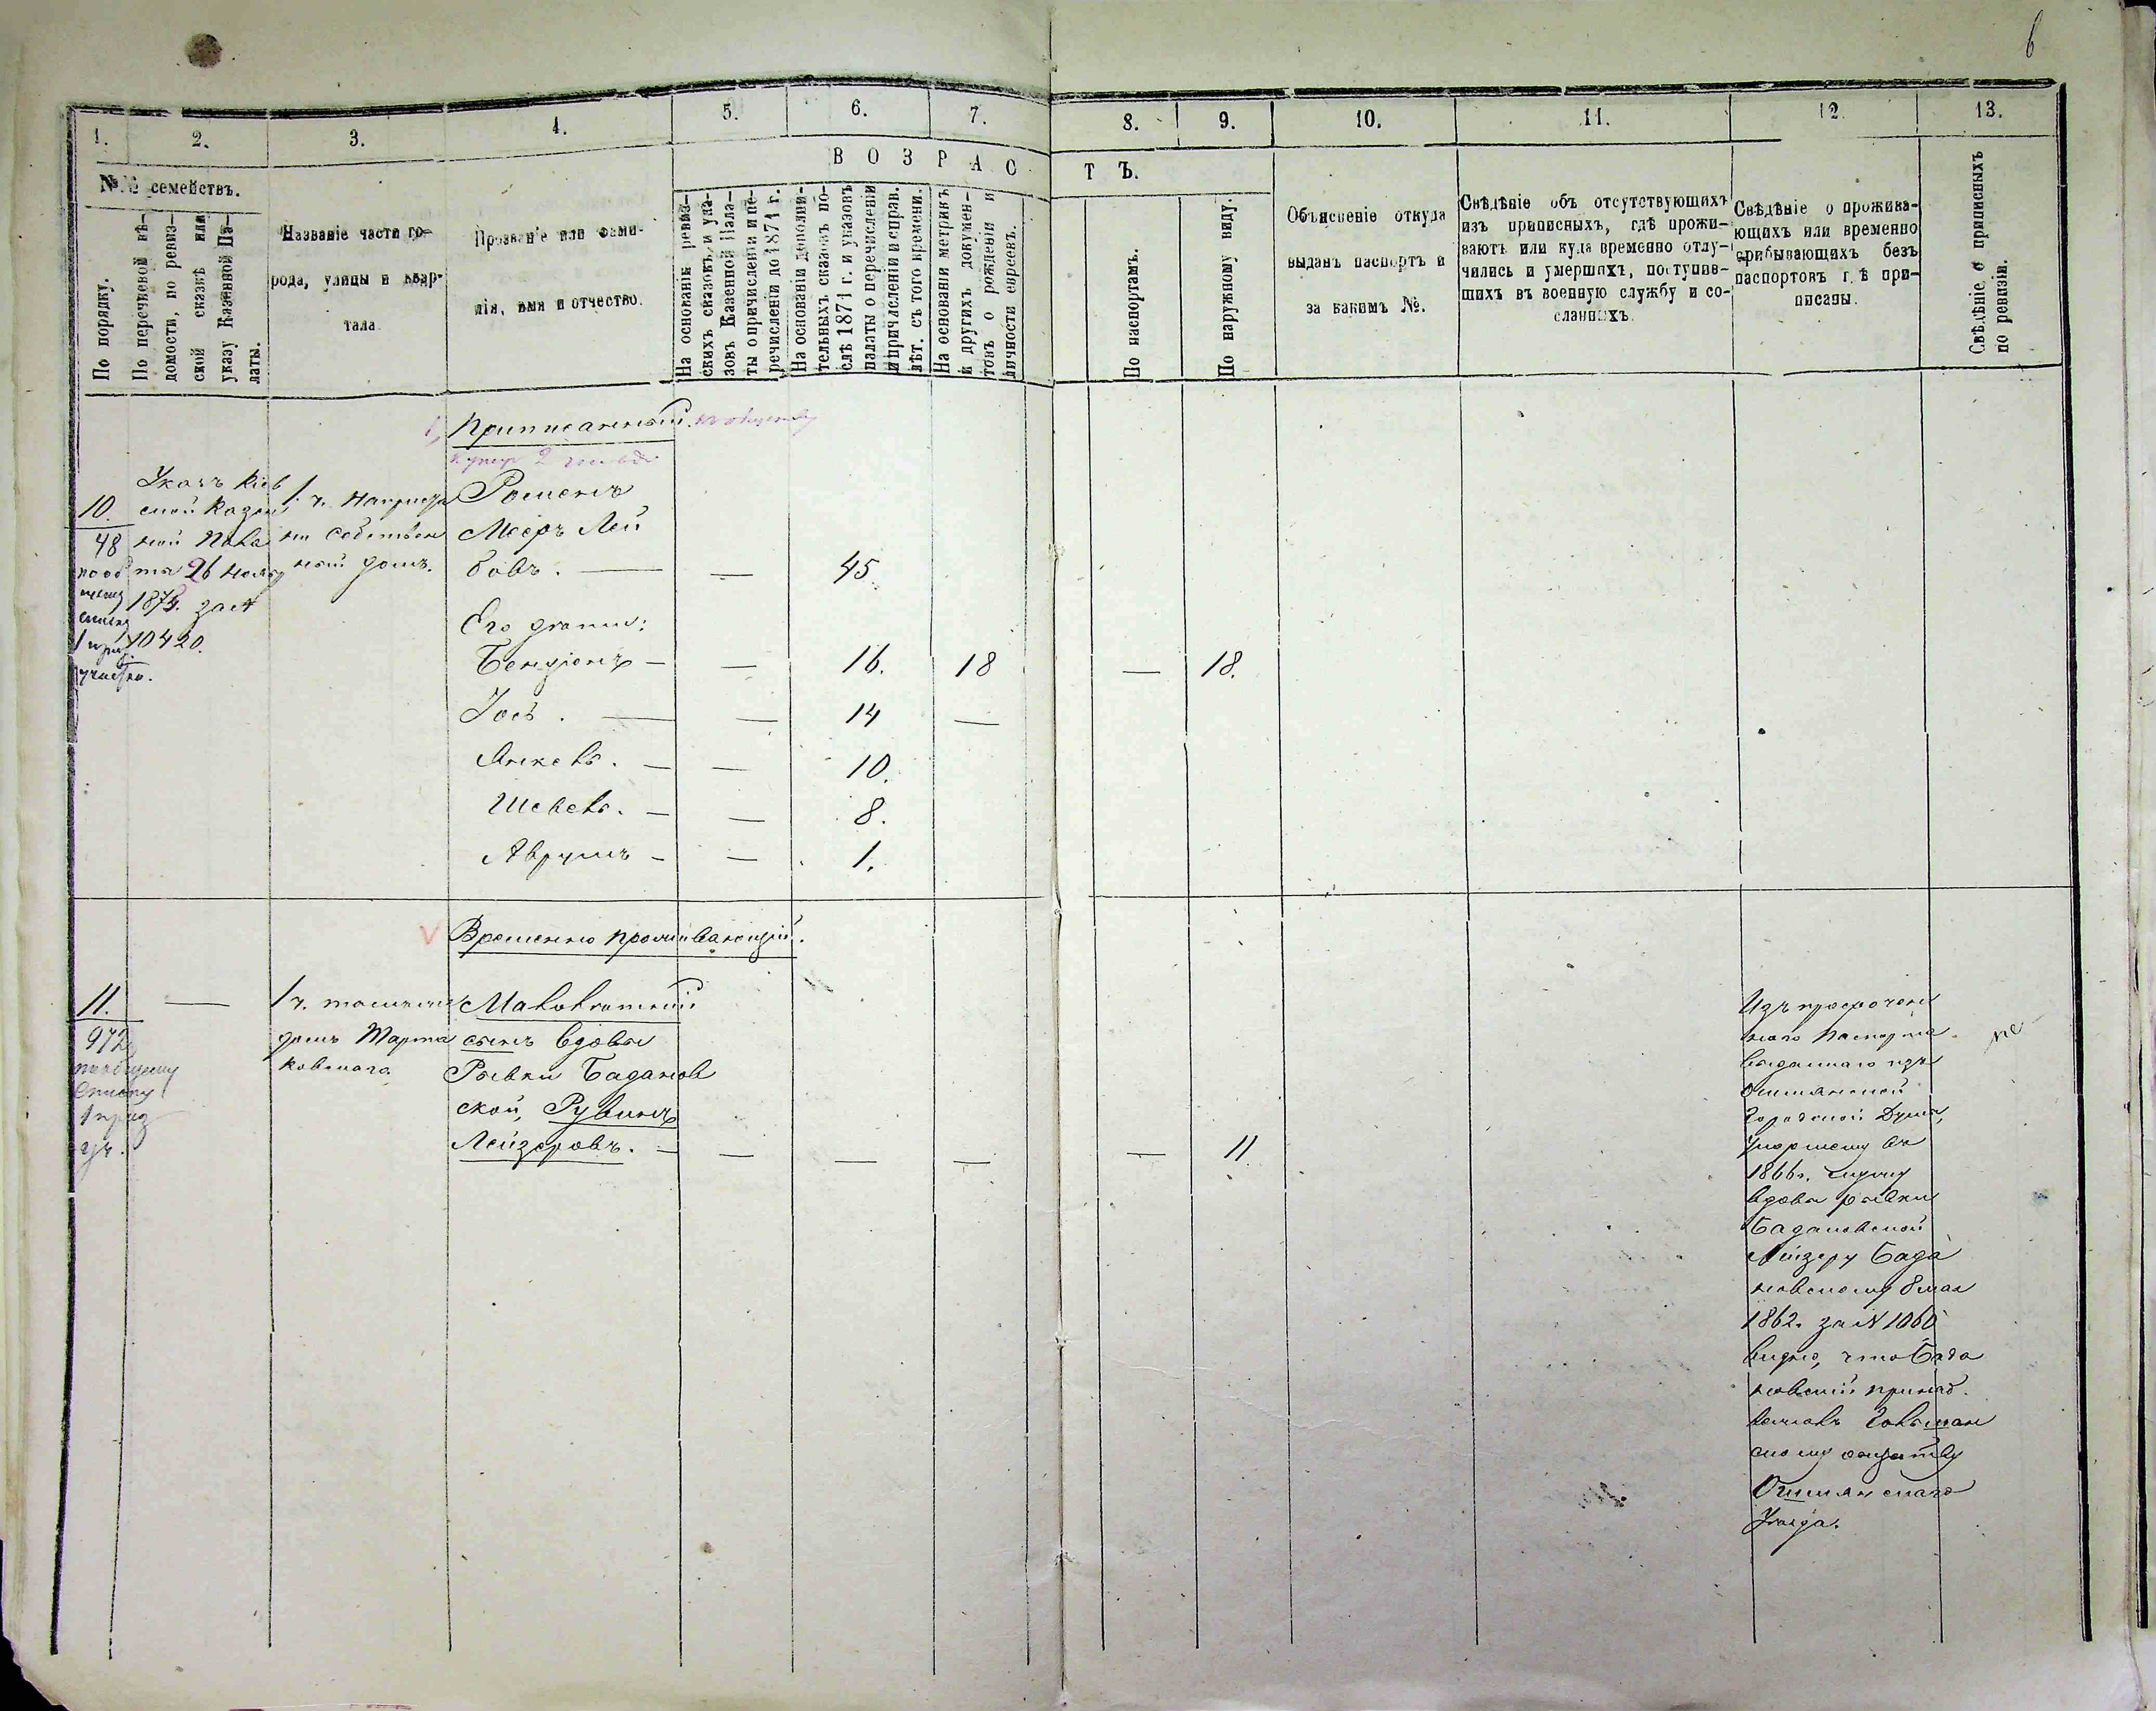 6
1.
2.
3.
4.
5.
6.
7.
8.
9.
10.
11.
12.
13.
№№ семействъ.
По порядку.
По перечневой вѣ-
домости, по ревиз-
ской сказкѣ или
указу Казенной Па-
латы.
Названіе части го-
рода, улицы и квар-
тала
Прозваніе или фами-
лія, имя и отчество.
ВОЗРАС
ТЪ.
На основаніи ревиз-
скихъ сказокъ и ука-
зовъ Казенной Пала-
ты о причисленіи и пе-
речисленіи до 1871 г.
На основаніи дополни-
тельныхъ сказокъ по-
слѣ 1871 г. и указовъ
палаты о перечисленіи
и причисленіи и справ.
лѣт. съ того времени.
На основаніи метрикъ
и другихъ докумен-
товъ о рожденіи и
личности евреевъ.
По паспортамъ.
По наружному виду.
Объясненіе откуда
выданъ паспортъ и
за какимъ №.
Свѣдѣніе объ отсутствующихъ
изъ приписныхъ, гдѣ прожи-
ваютъ или куда временно отлу-
чились и умершихъ, поступив-
шихъ въ военную службу и со-
сланныхъ.
Свѣдѣніе о прожива-
ющихъ или временно
прибывающихъ безъ
паспортовъ гдѣ при-
писаны.
Свѣдѣніе о приписныхъ
по ревизіи.
Приписанный. къ обществу
купер 2
10.
48
Указъ Кіев
ской Казен
ной Пала
ты 26 Ноября
187 за №
10420.
1 ч.
собствен
ный домъ.
Роменъ
Мееръ Лей
бовъ. — — 45
Его
Бенціонъ — — 16. 18 — 18.
Іось. — — 14 —
Янкель. — — 10.
Шевель. — — 8.
Аврумъ — — 1.
Временно проживающій.
11. —
972
по общему
списку
1 приз
уч.
1 ч.
домъ Марта
ковскаго
сынъ вдовы
Рывки Бадановской
ской, Рувинъ
Лейзеровъ. — — — — — 11
Изъ просрочен
наго паспорта
выданнаго изъ
Ошмянской
Городской Думы,
умершему въ
1866 г. мужу
вдовы Рывки
Бадановской
Лейзеру Бада
новскому 8 мая
1862 г. за № 1060
видно, что Бада
новскій принад.
лежалъ Гольшан
скому обществу
Ошмянскаго
Уѣзда.